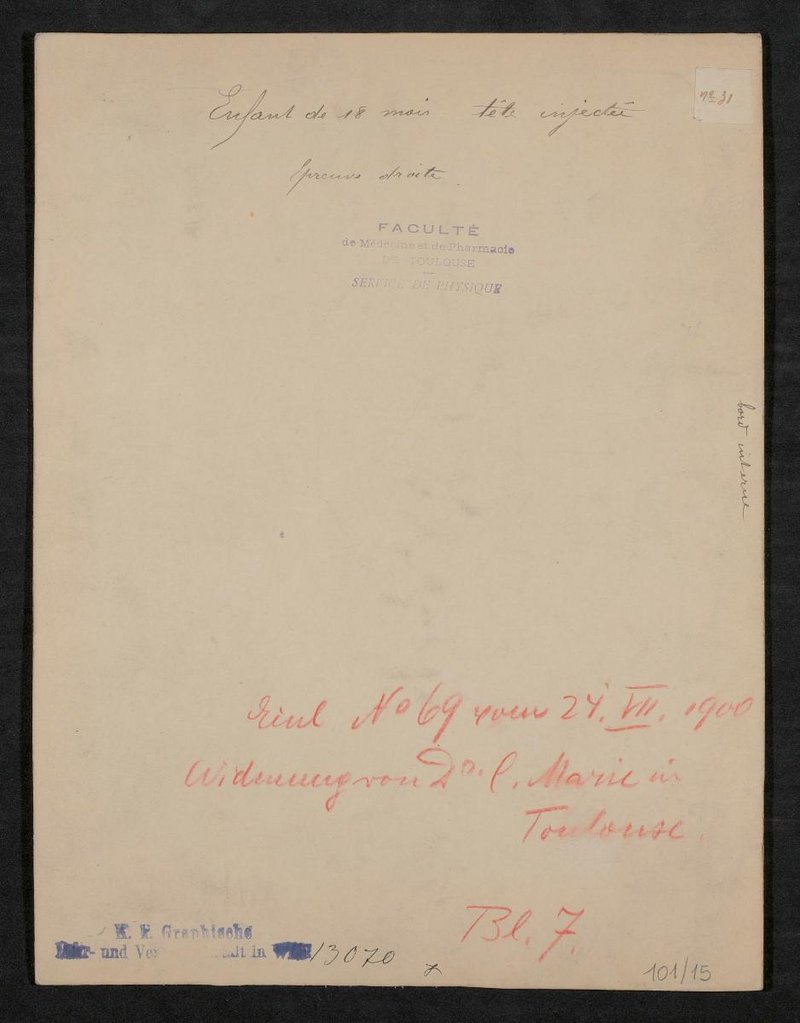 nº 31
Enfant de 18 mois tête injectée
Epreuve droite
FACULTÉ
de Médecine et de Pharmacie
DE TOULOUSE
SERVICE DE PHYSIQUE
bord interne
Einl Nº 69 vom 24. VII. 1900
Widmung von Dr. C. Marie in
Toulouse.
Bl. 7.
K. K. Graphische
Lehr- und in Wien
13070
101/15